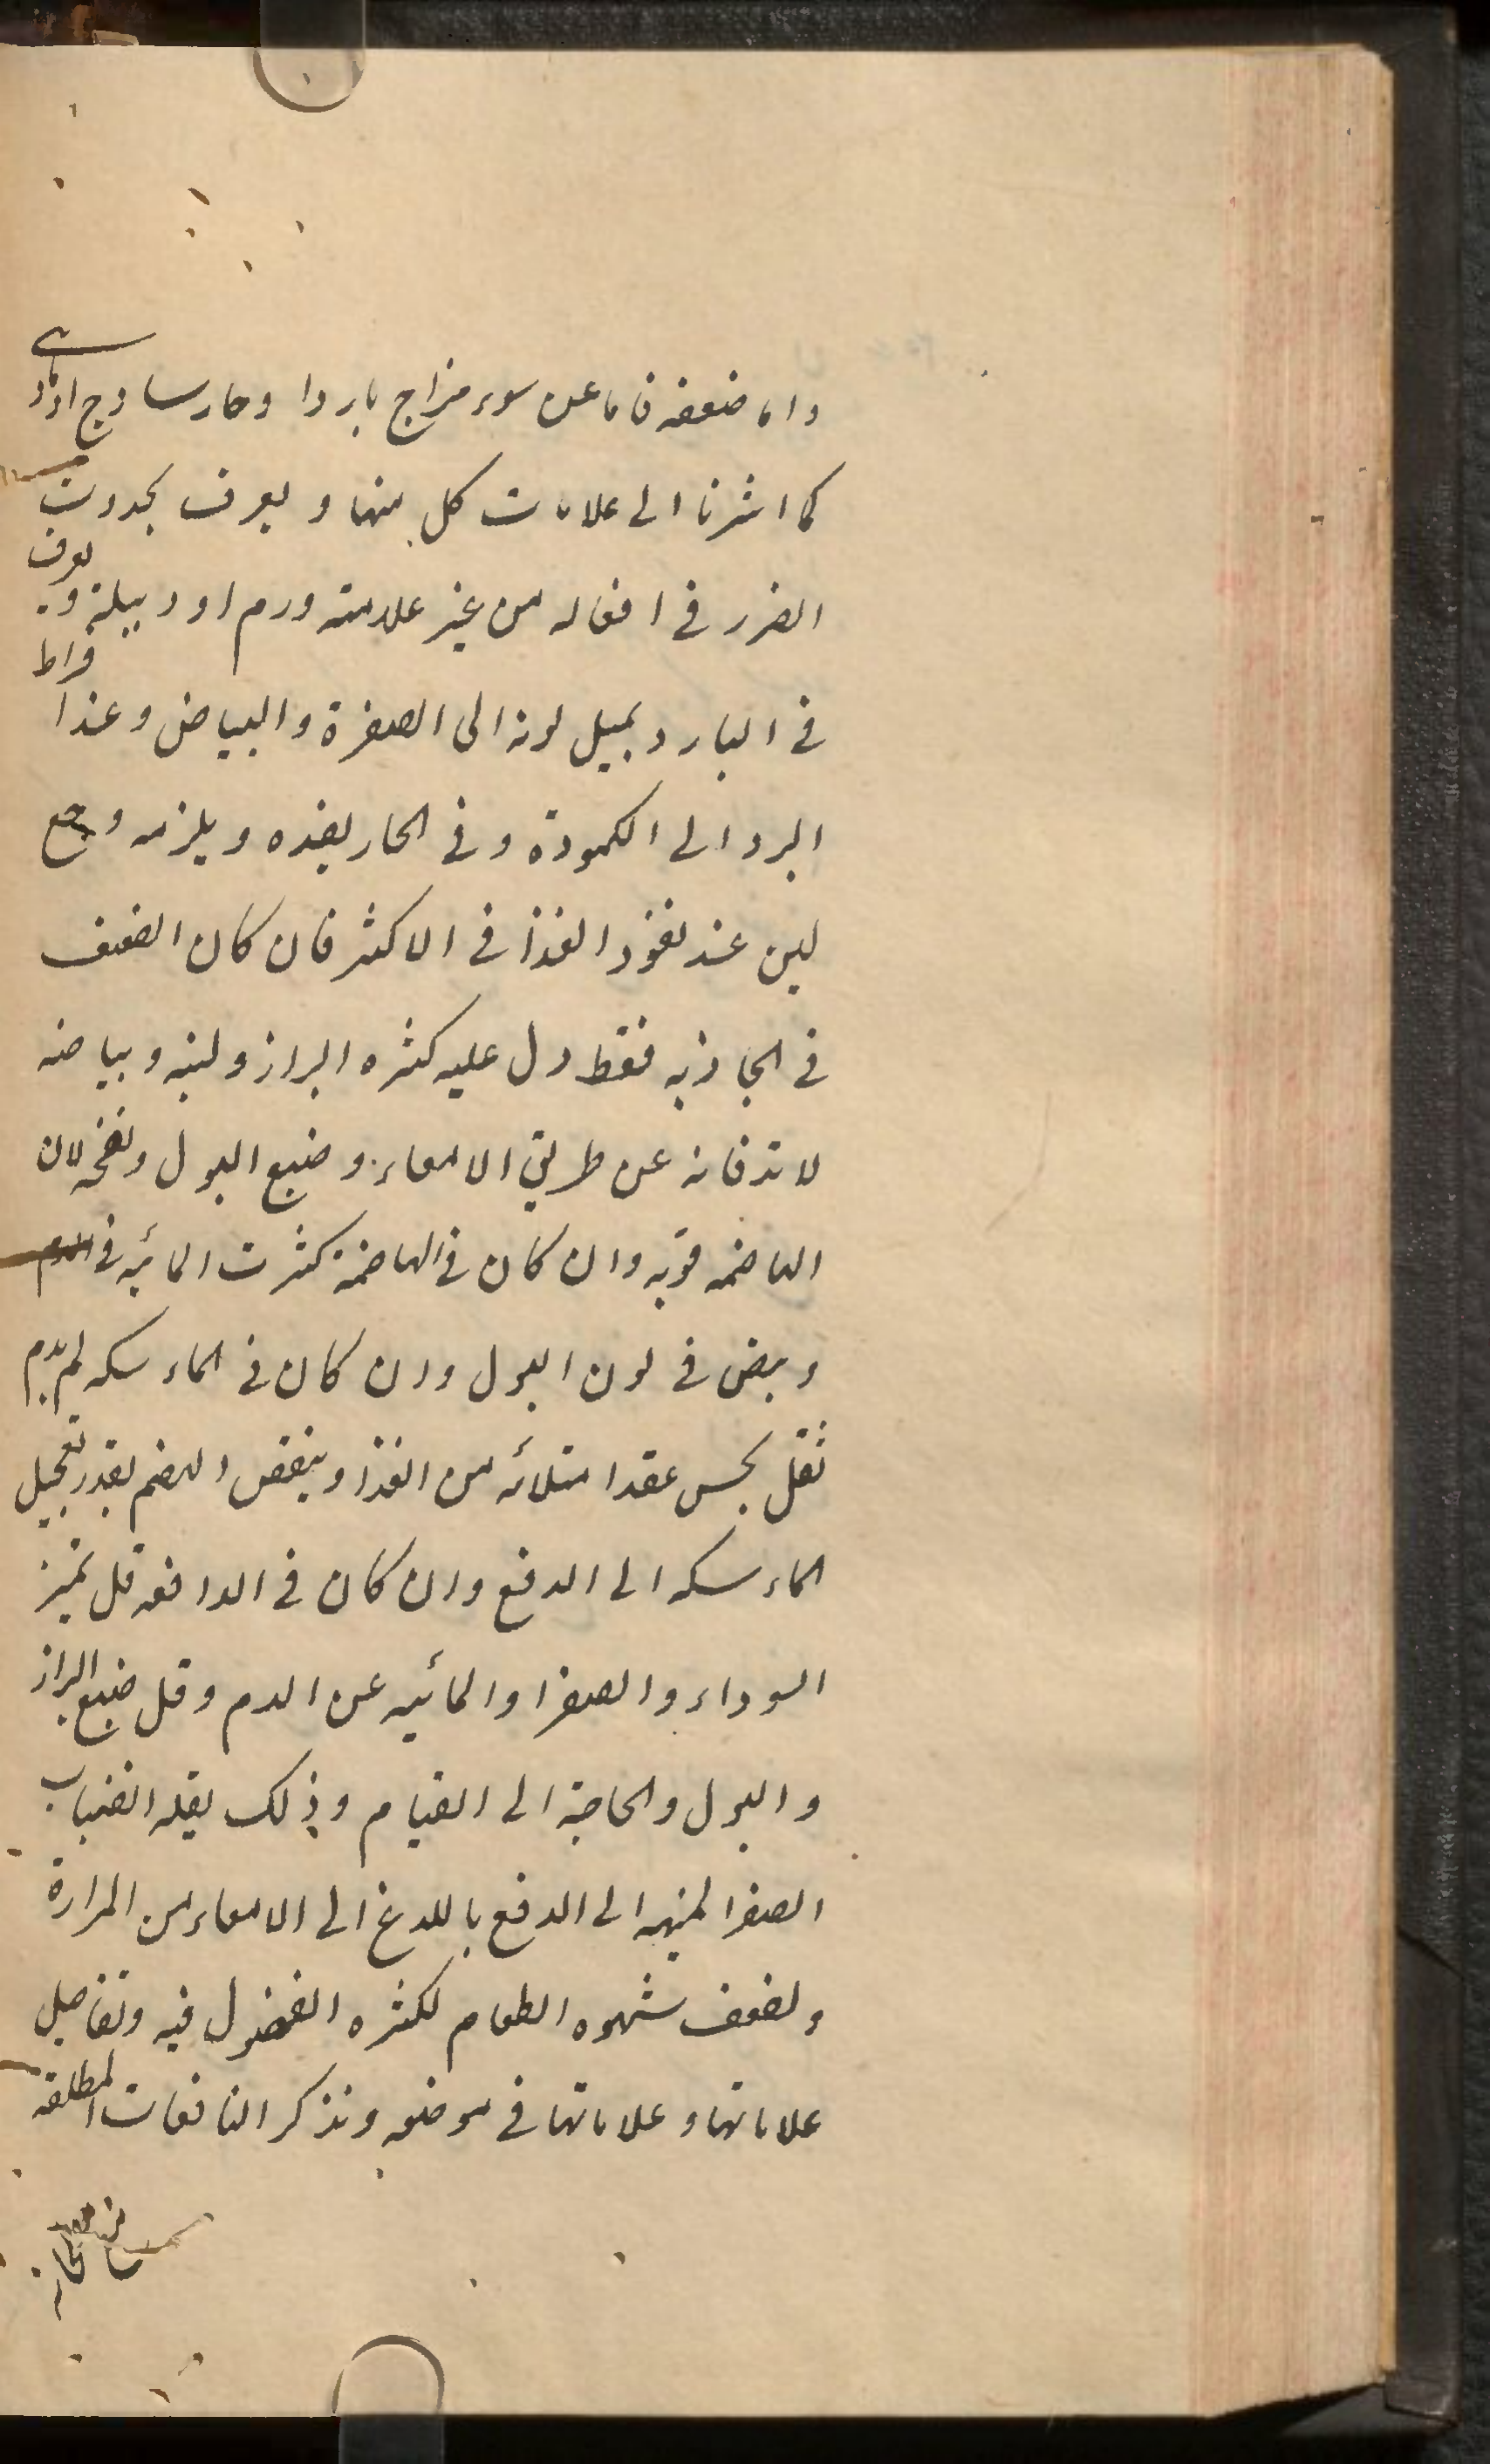 واما ضعفه فاما عن سوء مزاج باردا وحار ساذج او مادى
كما اشرنا الى علامات كل منها ويعرف بحدوث
الضرر فى افعاله من غير علامته ورم او دبيلة ويعرف
فى البارد بميل لونه الى الصفرة والبياض وعند افراط
البرد الى الكمودة وفى الحار بضده ويلزمه وجع
لين عند نفوذ الغذا فى الاكثر فان كان الضعف
فى الجاذبه فقط دل عليه كثره البراز ولينه وبياضه
لاندفاعه عن طريق الامعاء وصبغ البول ونضجه لان
الهاضمه قويه وان كان فى الهاضمة كثرت المائيه فى الدم
وبيض فى لون البول وان كان فى الماسكه لم يدم
ثقل يحس عقد امتلائه من الغذا وينقص الهضم بقدر تعجيل
الماسكه الى الدفع وان كان فى الدافعه قل تميز
السوداء والصفرا والمائيه عن الدم وقل صبغ البراز
والبول والحاجة الى القيام وذلك لقله انصباب
الصفرا المنبهه الى الدفع باللدغ الى الامعاء من المرارة
ولضعف شهوه الطعام لكثره الفضول فيه وتفاصيل
علاماتها وعلاماتها فى موضعه ونذكر النافعات المطلقه